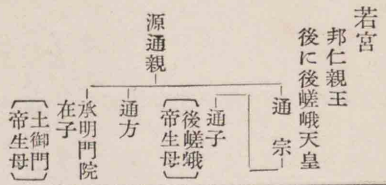 若宮
邦仁親王
後に後嵯峨天皇
通宗
通子
後嵯峨
帝生母
源通親
通方
承明門院
在子
土御門
帝生母